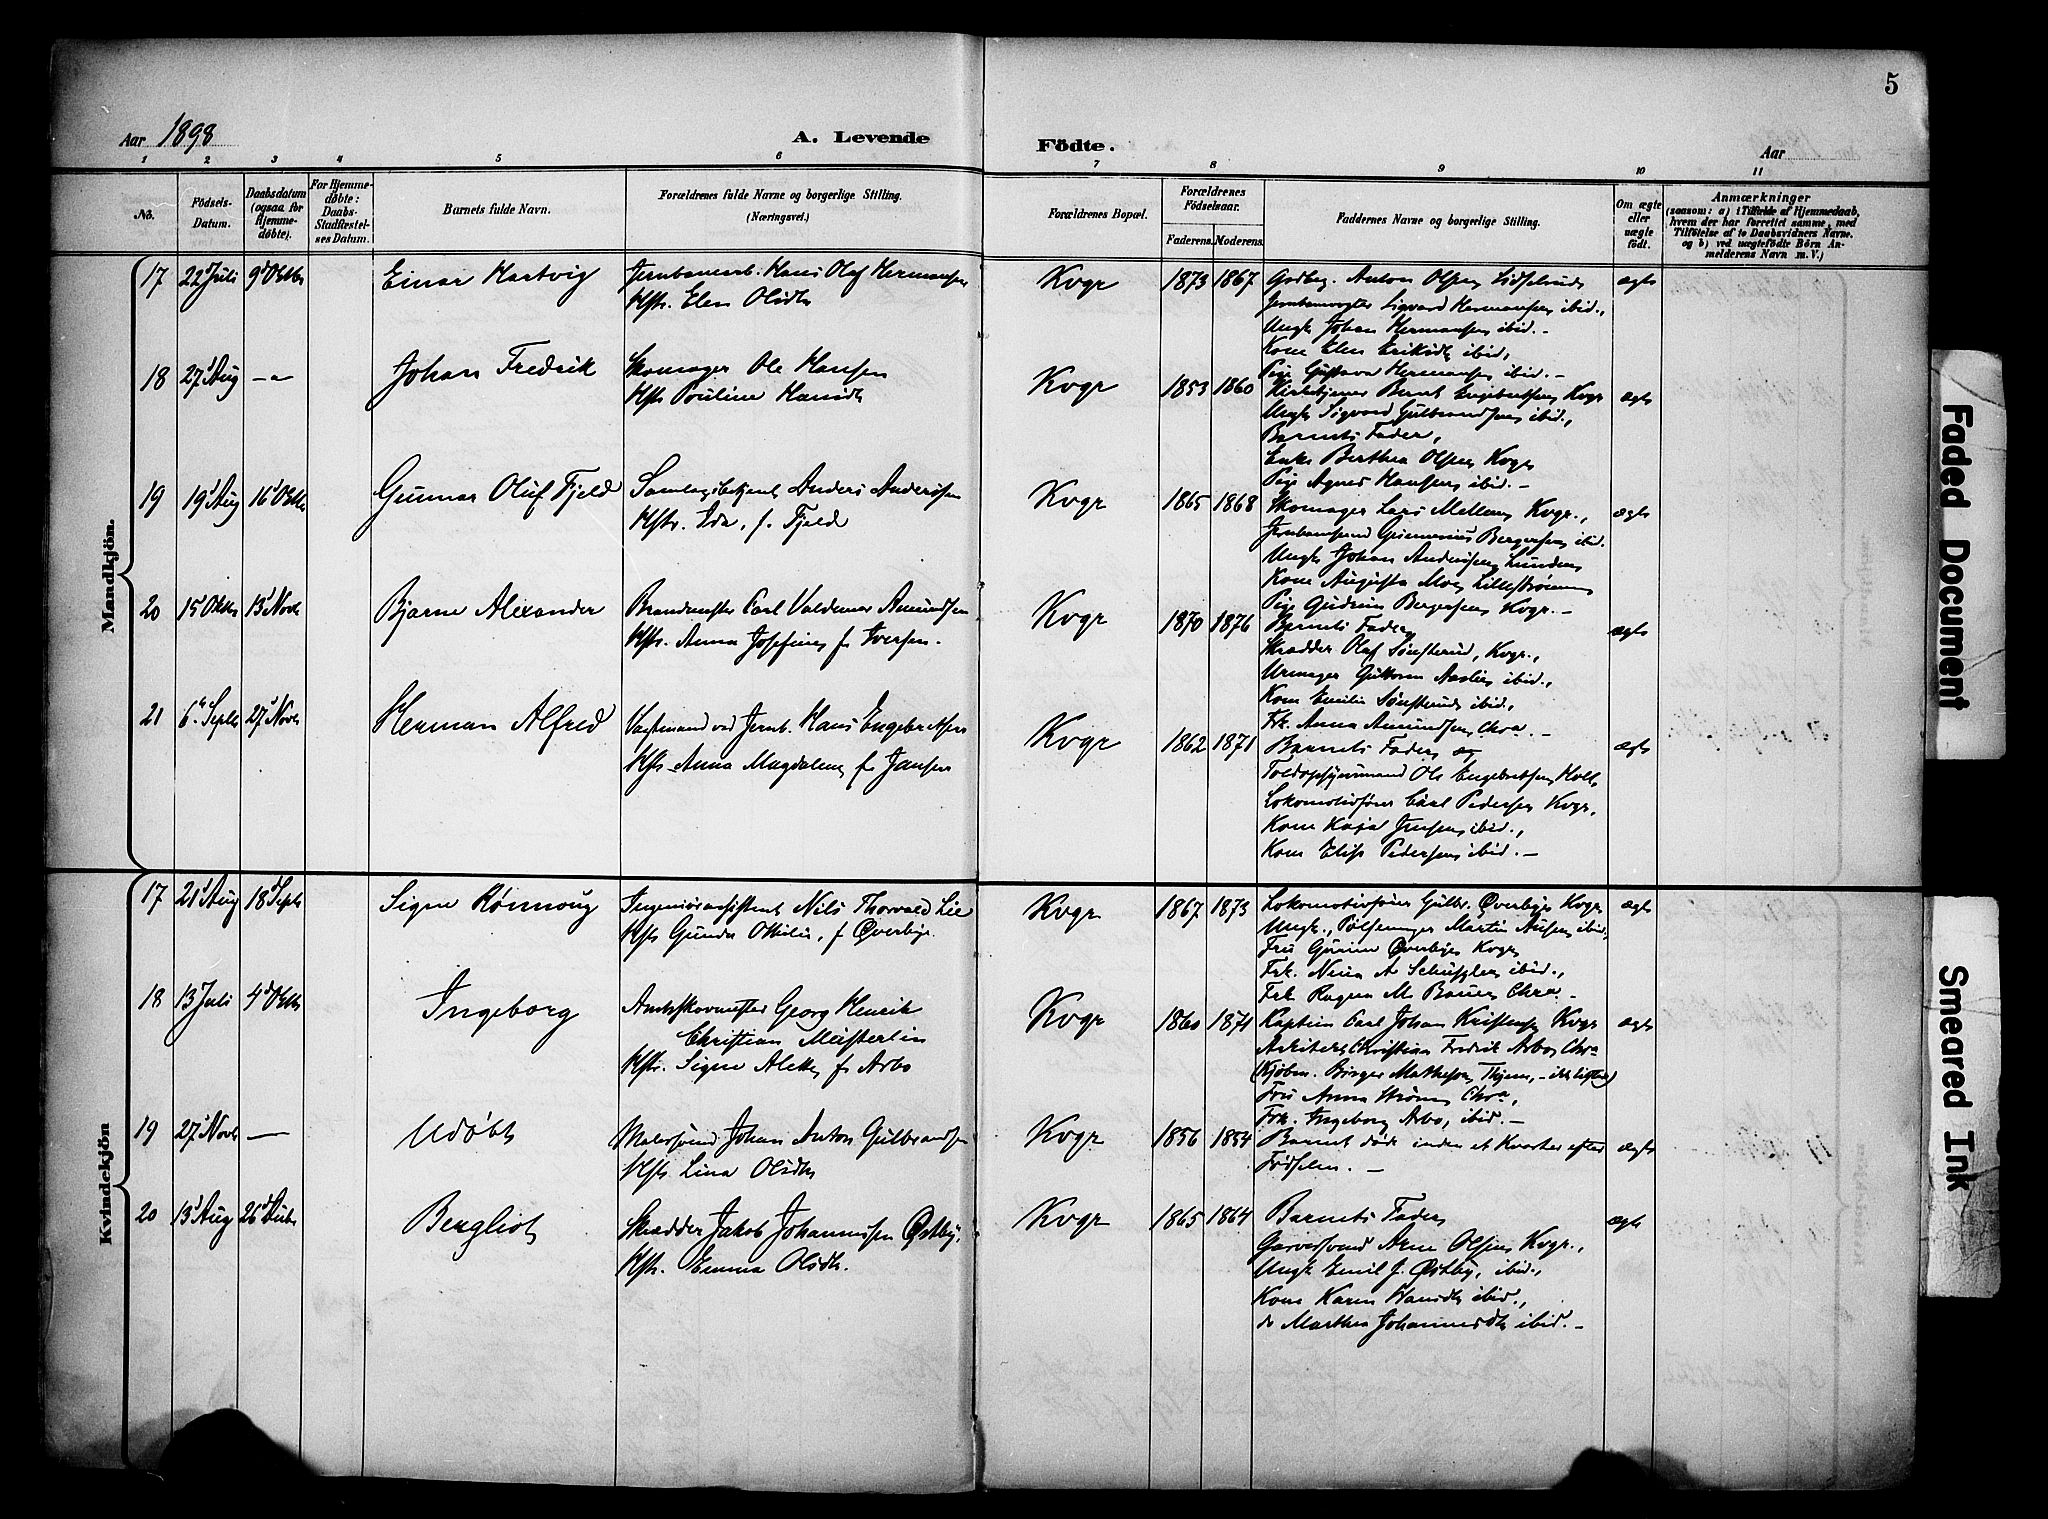 5
Aar 1898
A. Levende Födte.
Aar
1 2 3 4 5 6 7 8 9 10 11
No.
Födsels-Datum.
Daabsdatum (ogsaa for Hjemme-döbte).
For Hjemme-döbte: Daabs-Stadfæstel-ses Datum.
Barnets fulde Navn.
Forældrenes fulde Navne og borgerlige Stilling. (Næringsvei.)
Forældrenes Bopæl.
Forældrenes Födselsaar.
Faderens. Moderens.
Faddernes Navne og borgerlige Stilling.
Om ægte eller uægte födt.
Anmærkninger
(saasom: a) i Tilfælde af Hjemmedaab, hvem der har forrettet samme, med Tilföielse af to Daabsvidners Navne. og b) ved uægtefödte Börn Anmelderens Navn m. V.)
Mandkjön.
17 22 Juli 9 Oktbr Einar Hartvig Jernbanearb. Hans Olaf Hermansen Kvgr 1873 1867 Gbrbrg. Anton Olsen ægte
Hstr. Elen Olsdtr
Sigvard Hermansen ibid.,
Ungk. Johan Hermansen ibid. –
Kone Elen Eriksdtr ibid,
Pige Gustava Hermansen ibid. –
18 27 Aug Johan Fredrik Skomager Ole Hansen Kvgr 1853 1860 Kirketjener Bernt Engebretsen Kvgr ægte
Hstr Pauline Hansdtr
Ungk Sigvard Gulbrandsen ibid.,
Barnets Fader,
Enke Berthea Olsen Kvgr
Pige Agnes Hansen ibid. –
19 19 Aug 16 Oktbr Gunnar Oluf Fjeld Samlagsbetjent Anders Andersen Kvgr 1865 1868 Skomager Lars Mellem Kvgr., ægte
Hstr. Ida, f. Fjeld
Bergersen ibid.
Ungk Johan Andersen Lunden
Kone Augusta Moe Lillestrømmen
Pige Gudrun Bergersen Kvgr. –
20 15 Oktbr 13 Novbr Bjarne Alexander Brandmester Carl Valdemar Amundsen Kvgr 1870 1876 Barnets Fader ægte
Hstr. Anna Josefine f. Iversen.
Skrædder Olaf Sønsterud, Kvgr.,
Urmager Guttorm Aaslie ibid.,
Kone Emilie Sønsterud ibid.,
Frk. Anna Amundsen Chra. –
21 6 Septbr 27 Novbr Herman Alfred Vogtmand ved Jernb. Hans Engebretsen Kvgr 1862 1871 Barnets Fader og ægte
Hstr. Anna Magdalene f. Jansen
Toldopsynsmand Ole Engebretsen
Lokomotivfører Carl Pedersen Kvgr,
Kone Kaja Jensen ibid.,
Kone Elise Pedersen ibid. –
Kvindekjön
17 21 Aug 18 Septr Signe Rønnoug Ingeniørassistent Nils Thorvald Lie Kvgr 1867 1873 Lokomotivfører Gulbr. Øverbye Kvgr ægte
Hstr Gunda Otilie, f Øverbye.
Ungk., Pølsemager Martin ibid.,
Øverbye Kvgr
Frk. Nina A ibid.,
Frk Ragna M. Bauer Chra. –
18 13 Juli 4 Oktbr Ingeborg Amtskovmester Georg Henrik Kvgr 1860 1871 Kaptein Carl Johan Kristensen Kvgr ægte
Christian Meisterlin
Arkitekt Christian Fredrik Arbo Chra
Hstr. Signe Alette f. Arbo
(Kjøbm. Birger Mathesen
Fru Anna Strøm Chra,
Frk. Ingeborg Arbo, ibid. –
19 27 Novbr — Udøbt Malersvend Johan Anton Gulbrandsen Kvgr 1856 1854 Barnet døde inden et Kvarter efter ægte
Hstr Lina Olsdtr
Fødselen. –
20 13 Aug 26 Bergliot Skrædder Jakob Johannessen Østby, Kvgr 1865 1864 Barnets Fader ægte
Hstr. Emma Olsdtr.
Garversvend Arne Olsen Kvgr.,
Ungk Emil J. Østby, ibid.,
Kone Karen Hansdtr ibid.,
do Marthea Johannesdtr ibid. –
Faded Document
Smeared Ink